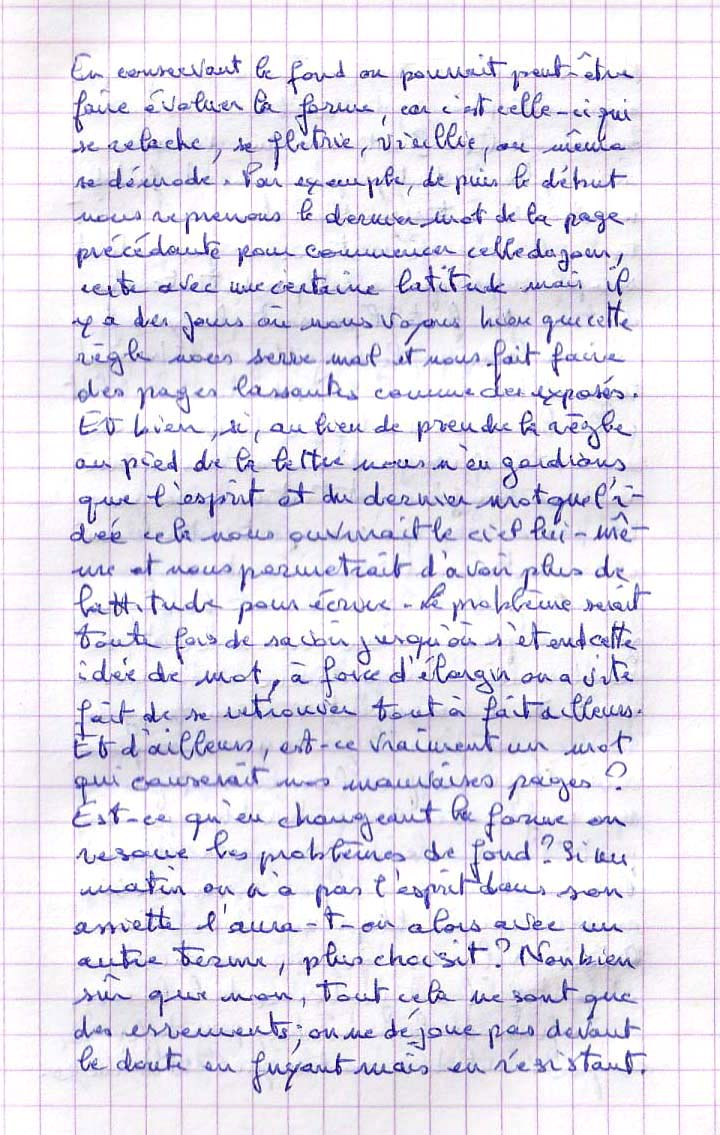 En conservant le fond on pourrait peut-être
faire évoluer la forme, car c'est celle-ci qui
se relache, se fletrie, vieillie, ou même
se démode. Par exemple, depuis le début
nous reprenons le dernier mot de la page
précédante pour commencer celle du jour,
certe avec une certaine latitude mais il
y a des jours où nous voyons bien que cette
règle nous serre mal et nous fait faire
des pages lassantes comme des exposés.
Et bien, si, au lieu de prendre la règle
au pied de la lettre nous n'en gardions,
que l'esprit et du dernier mot que l'i-
dée cela nous ouvrirait le ciel lui-mê-
me et nous permettrait d'avoir plus de
lattitude pour écrire. Le problème serait
toute fois de savoir jusqu'où s'étend cette
idée de mot, à force d'élargir on a vite
fait de se retrouver tout à fait ailleurs.
Et d'ailleurs, est-ce vraiment un mot
qui causerait nos mauvaises pages ?
Est-ce qu'en changeant la forme on
resoue les problèmes de fond ? Si un
matin on n'a pas l'esprit dans son
assiette l'aura-t-on alors avec un
autre terme, plus choisit ? Non bien
sûr que non, tout cela ne sont que
des errements ; on ne déjoue pas devant
le doute en fuyant mais en résistant.